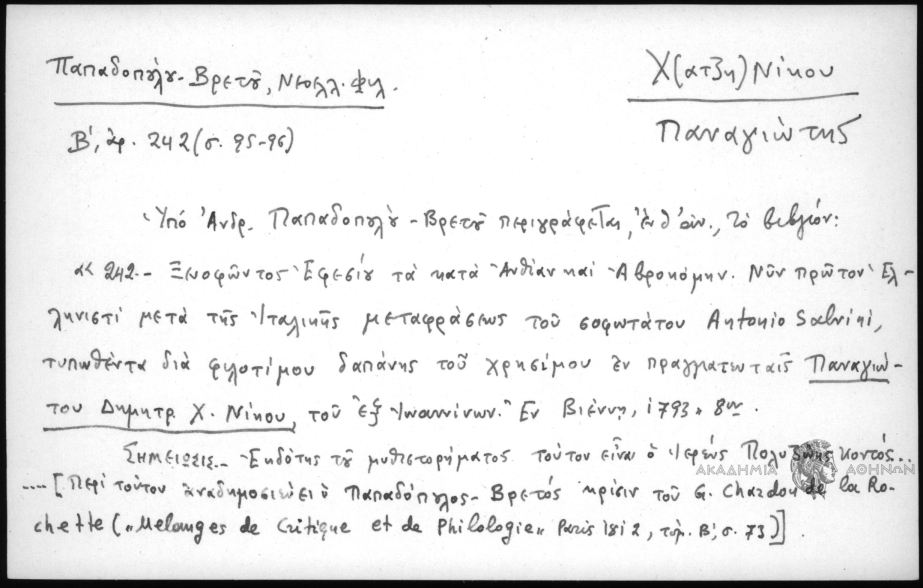 Παπαδοπούλου-Βρετοῦ, Νεοελλ. Φιλ.
Χ(ατζη)Νίκου
Παναγιώτης
Β', ἀρ. 242 (σ. 95-96)
Ὑπό Ἀνδρ. Παπαδοπούλου-Βρετοῦ περιγράφεται, ἔνθ' ἀν., τὸ βιβλίον:
« 242.- Ξενοφῶντος Ἐφεσίου τὰ κατὰ Ἀνθίαν καὶ Ἀβροκόμην. Νῦν πρῶτον Ἑλ-
ληνιστὶ μετὰ τῆς Ἰταλικῆς μεταφράσεως τοῦ σοφωτάτου Antonio Salvini,
τυπωθέντα διὰ φιλοτίμου δαπάνης τοῦ χρησίμου ἐν πραγματευταῖς Παναγιώ-
του Δημητρ. Χ. Νίκου, τοῦ ἐξ Ἰωαννίνων. Ἐν Βιέννῃ, 1793. 8ον.
Σημείωσις.- Ἐκδότης τοῦ μυθιστορήματος τούτου εἶναι ὁ Ἱερεὺς Πολυζώης Κοντός..
....[Περὶ τούτου ἀναδημοσιεύει ὁ Παπαδόπουλος-Βρετός κρίσιν τοῦ G. Chardon de la Ro-
chette («Melanges de Critique et de Philologie» Paris 1812, τόμ. Β', σ. 73)].
ΑΚΑΔΗΜΙΑ ΑΘΗΝΩΝ